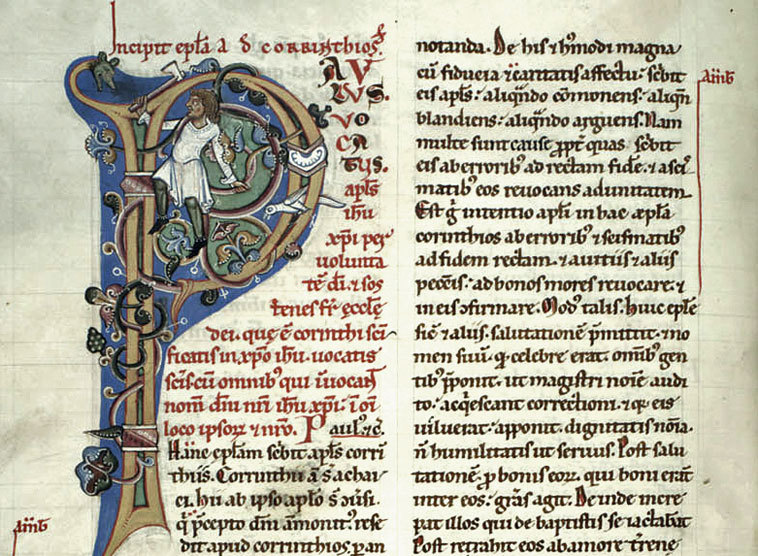 Incipit epl̄a A D̄ CORRINTHIOS
AV
LVS.
VO
CA
TVS.
apl̄s
ih̄u
xp̄i per
volunta
tē dī & sos
tenes fr̄ eccl̄ē
dei. quę ē corinthi sc̄i
ficatis in xp̄o ih̄u. uocatis
sc̄is cum omnibus qui īuocant
nom̄ dn̄i nr̄i ih̄u xp̄i. ī om̄i
loco ipsoꝝ & nr̄o. Paul' &c̄.
Hanc epl̄am sc̄bit apl̄s corrī
thiis. Corrinthii ā s̄ achai
ei. hii ab ipso apl̄o
q̄ p̄cepto dn̄i āmonit' rese
dit apud corinthios
Am̄b
notanda. De his & h'modi magna
cū fiducia & caritatis affectu. sc̄bit
eis apl̄s. aliqn̄do cōmonens. aliqn̄
blandiens. aliqn̄do arguens. Nam
multe sunt cause ꝓpt̄ quas sc̄bit
eis ab erroribꝫ ad rectam fidē. & a sci
matibꝫ eos revocans ad unitatem
Est g̊ intentio apl̄i in hac epl̄a
corinthios ab erroribꝫ & scismatibꝫ
ad fidem rectam. & a uitiis & aliis
pecc̄is. ad bonos mores revocare. &
in eis ꝯfirmare. Mod' talis. Huic eplę
sic̄ & aliis. salutationē p̄mittit. & no
men suū qđ celebre erat. omībꝫ gen
tibꝫ p̄ponit. ut magistri noīe audi
to. acq̇escant correctioni. & qꝛ eis
uiluerat. apponit dignitatis nōia.
n̄ humilitatis ut seruus. Post salu
tationē ꝓ bonis eoꝝ. qui boni erant
inter eos. gr̄as agit. Deinde incre
pat illos qui de baptistis se iactabāt
Post retrahit eos ab amore t̄rene
Am̄b